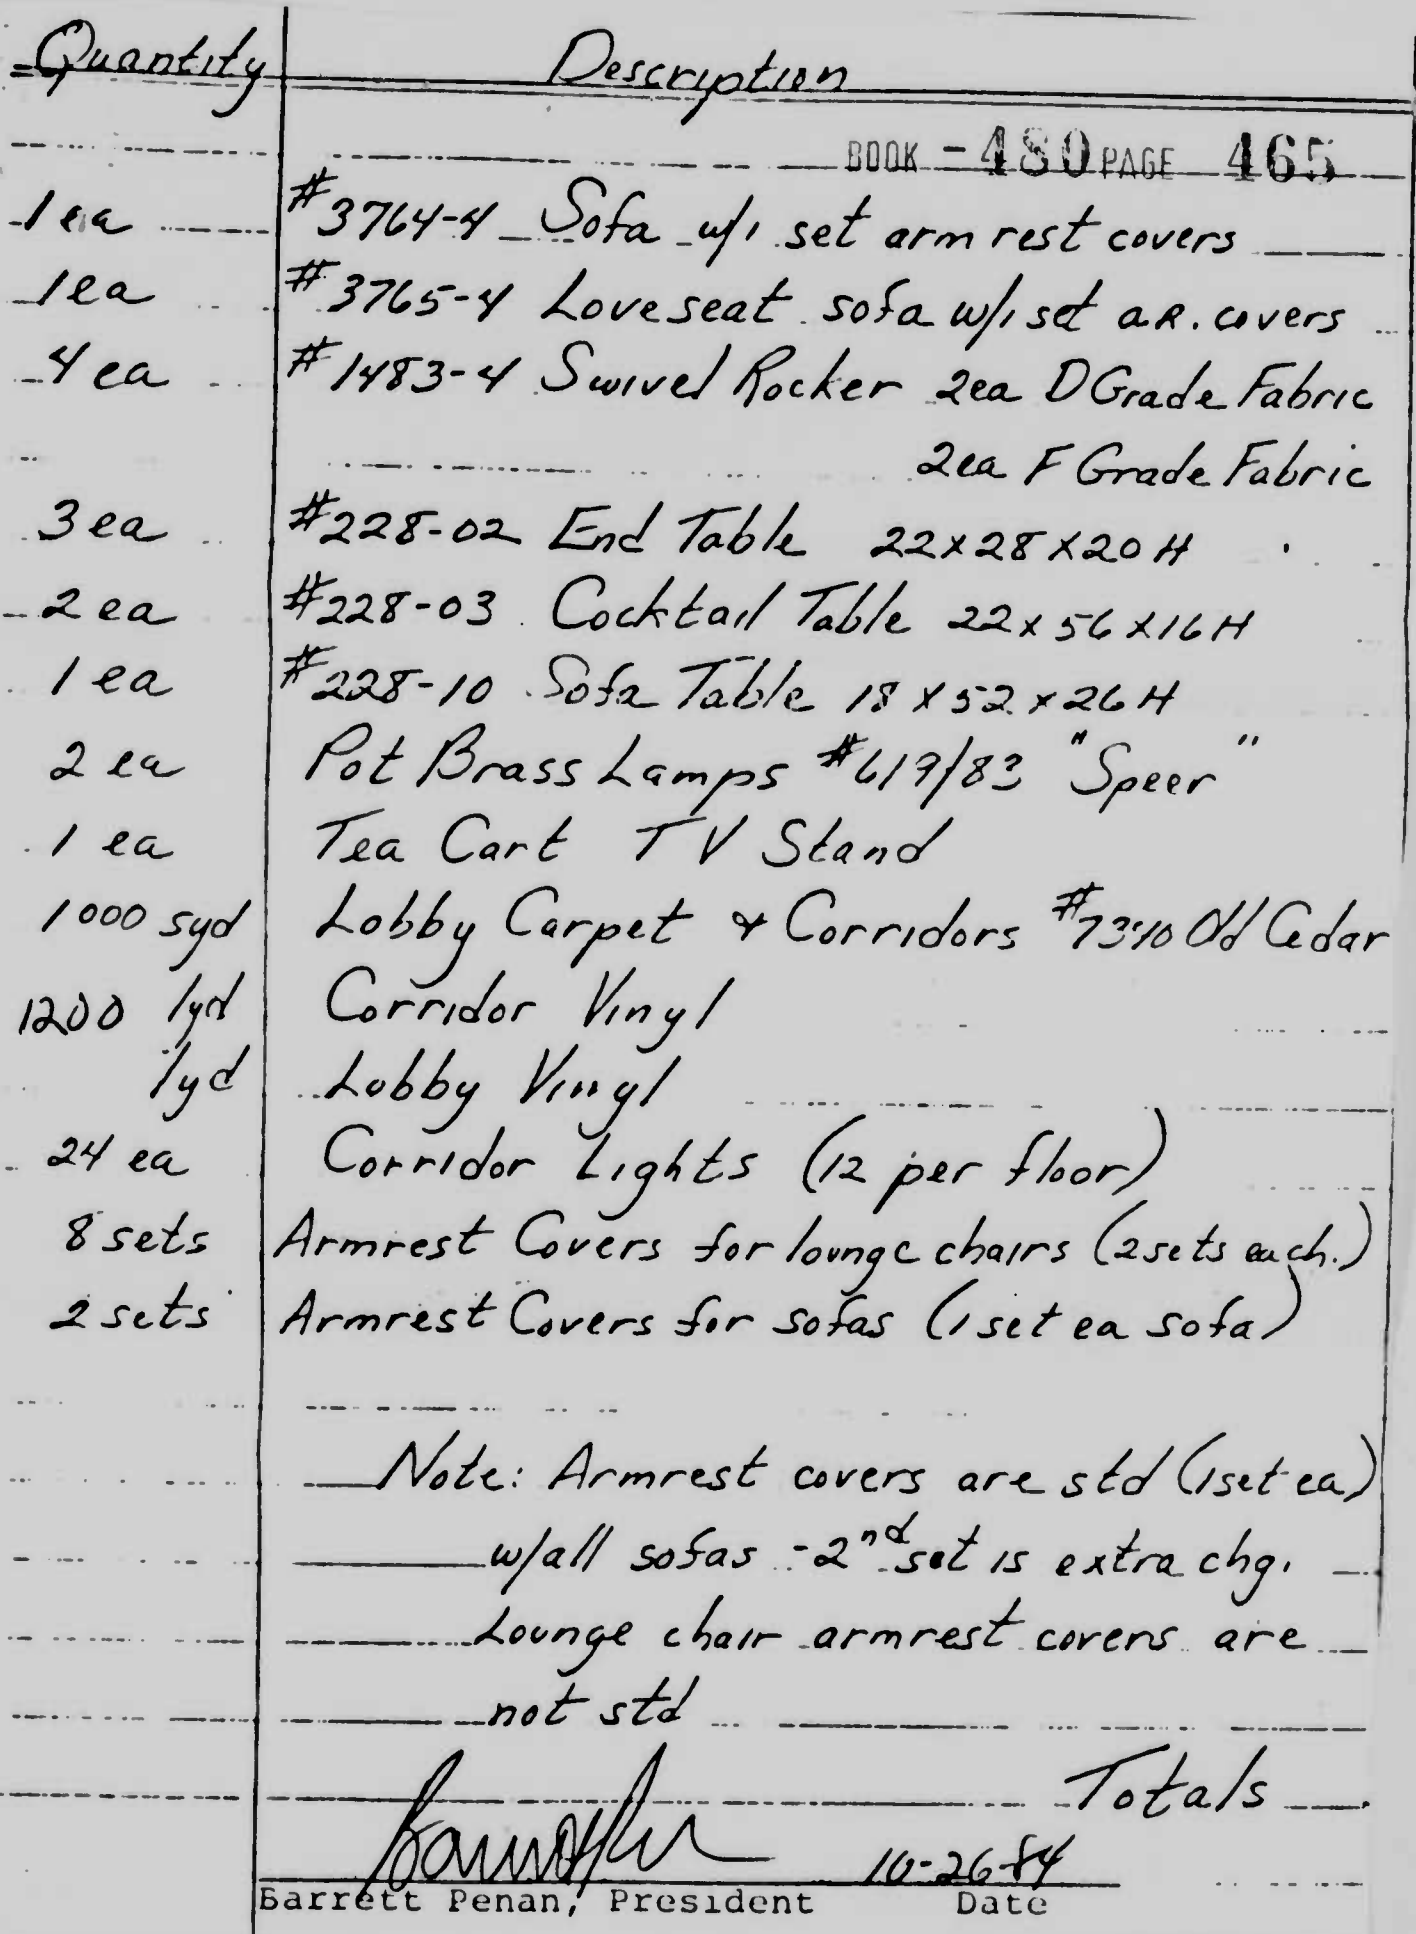 Quantity Description
BOOK - 480 PAGE 465
1 ea #3764-4 Sofa w/1 set arm rest covers
1 ea #3765-4 Loveseat sofa w/1 set a.R. covers
4 ea #1483-4 Swivel Rocker 2ea D Grade Fabric
2ea F Grade Fabric
3 ea #228-02 End Table 22x28x20H
2 ea #228-03 Cocktail Table 22x56x16H
1 ea #228-10 Sofa Table 18x52x26H
2 ea Pot Brass Lamps #619/83 "Speer"
1 ea Tea Cart TV Stand
1000 syd Lobby Carpet & Corridors Old Cedar
1200 lyd Corridor Vinyl
lyd Lobby Vinyl
24 ea Corridor Lights (12 per floor)
8 sets Armrest Covers for lounge chairs (2 sets each.)
2 sets Armrest Covers for sofas (1 set ea sofa)
Note: Armrest covers are std (1 set ea)
w/all sofas - 2nd set is extra chg.
Lounge chair armrest covers are
not std
Totals
10-26-84
Barrett Penan, President Date